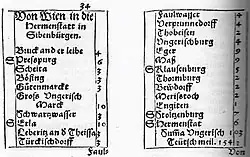 34
Von Wien in die
Hermenstatt in
Sibenbürgen.
Bruck and er leibe 6
S Presspurg
Schelta 3
Bösing 3
Gütenmarckt 3
Gross Ungerisch
Marck 10
Schwartzwasser 3
S Erla 10
Leberin an d Theissa 3
Türckischdorff 2
Faul⸗
Faulwasser
Verprunnedorff
Thobesten
Ungerischburg
Eger
Maß 9
S Clausenburg
S Thornburg
Newdorff
Meristroch
Engiten
S Stoltzenburg
S Hermenstat 10
Suma Ungerisch 103
Teütschmeil. 154
Von